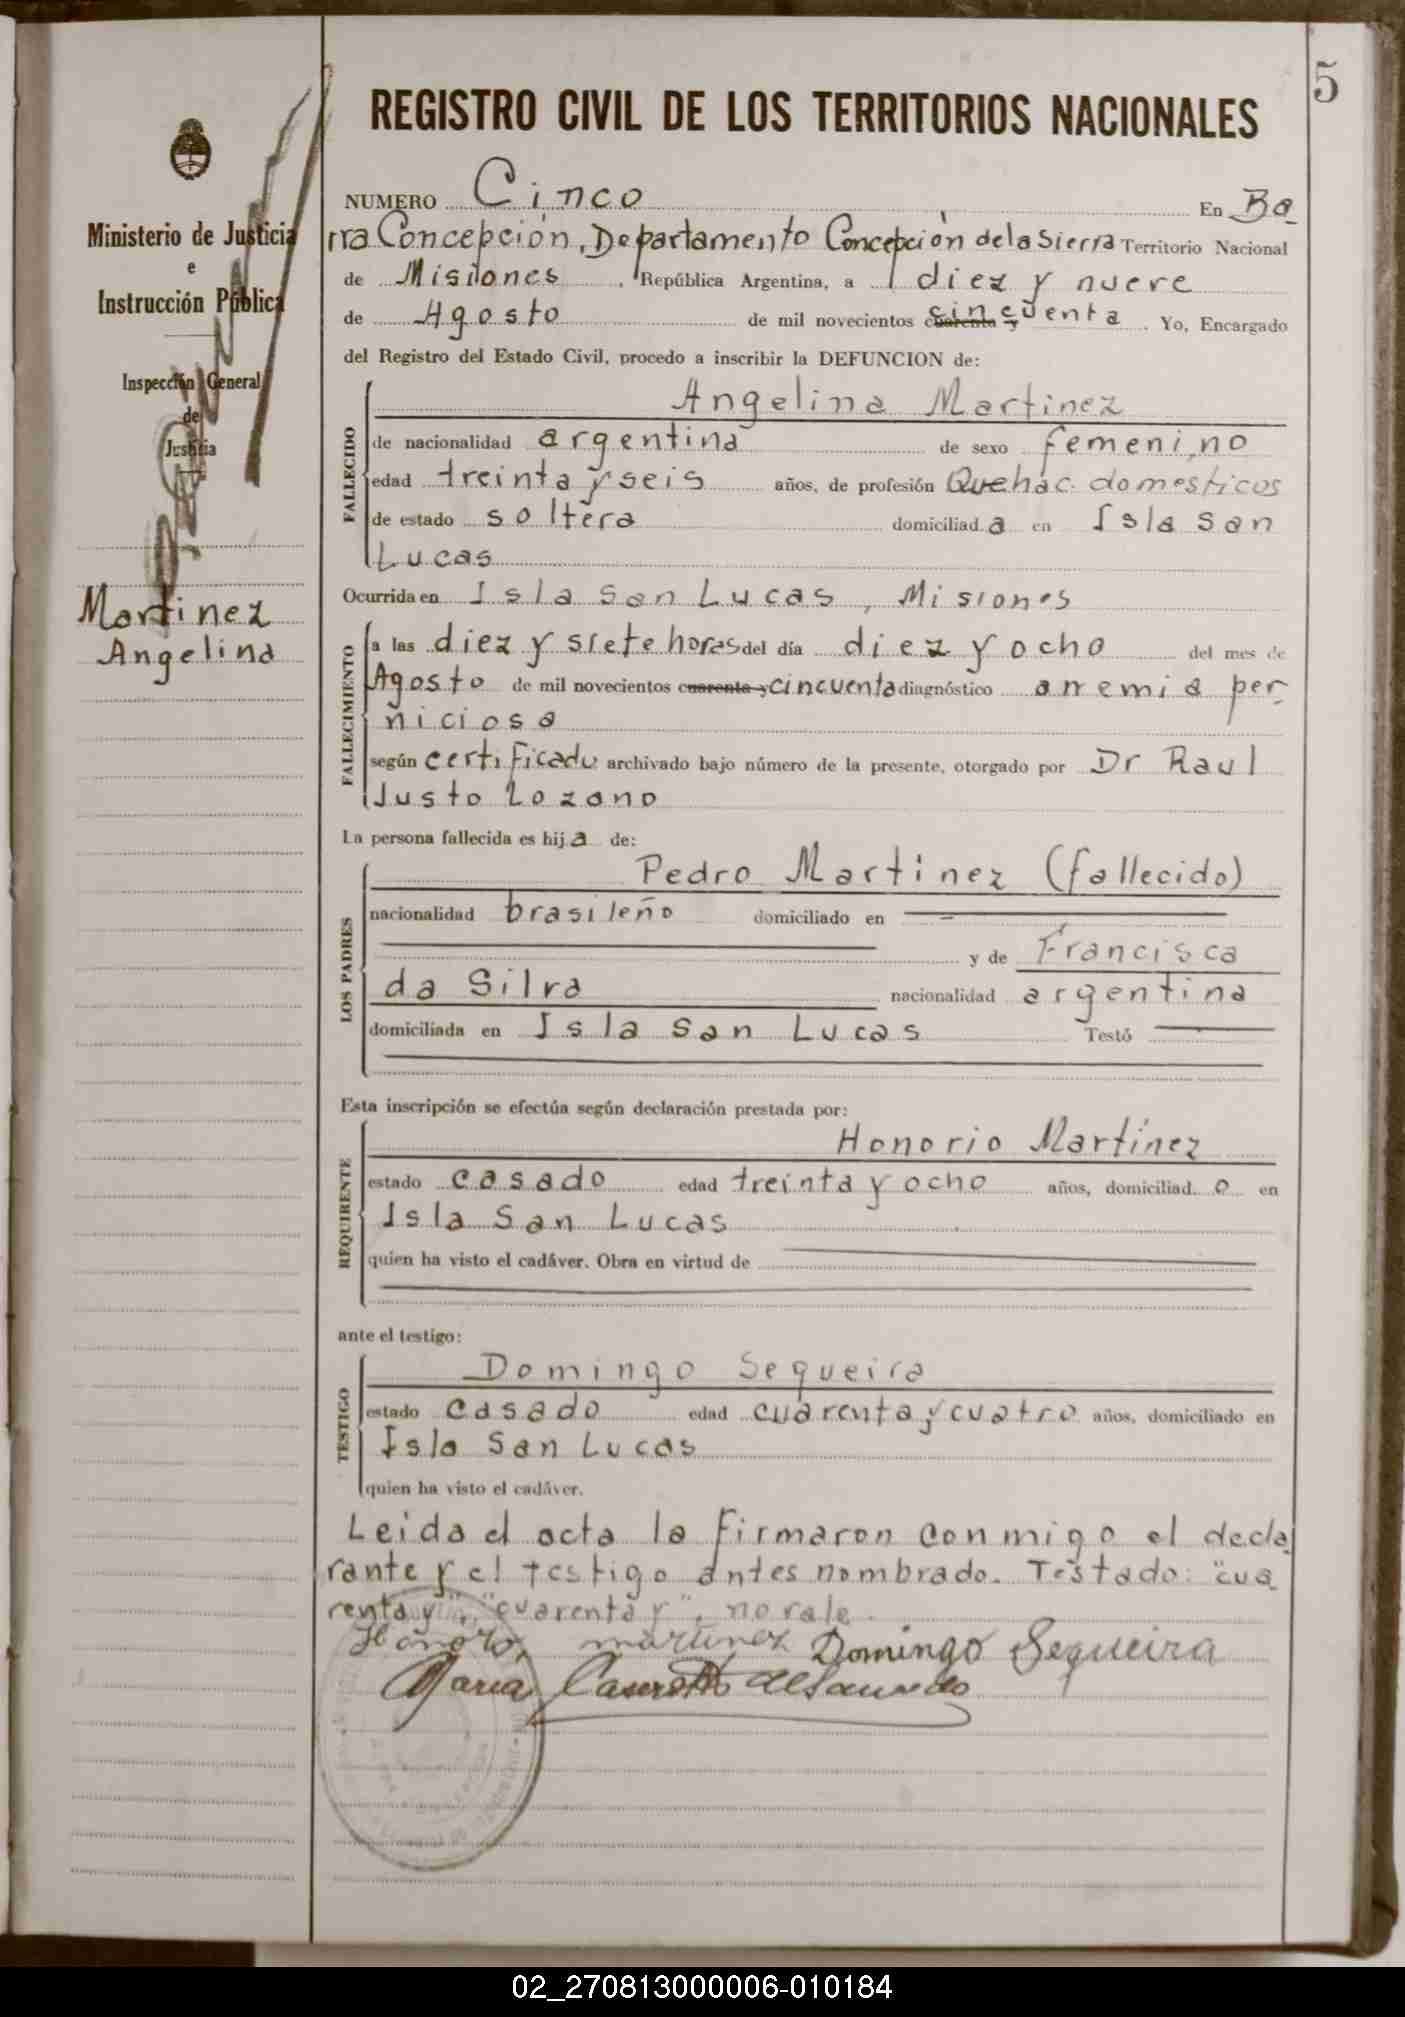 5
REGISTRO CIVIL DE LOS TERRITORIOS NACIONALES
Ministerio de Justicia
e
Instrucción Pública
Inspección General
de
Justicia
Martinez
Angelina
NUMERO Cinco En Ba
rra Concepción, Departamento Concepción de la Sierra Territorio Nacional
de Misiones, República Argentina, a diez y nueve
de Agosto de mil novecientos cuarenta y cincuenta. Yo, Encargado
del Registro del Estado Civil, procedo a inscribir la DEFUNCION de:
FALLECIDO
Angelina Martinez
de nacionalidad argentina de sexo femenino
edad treinta y seis años, de profesión Quehac. domesticos
de estado soltera domiciliad a en Isla San
Lucas
Ocurrida en Isla San Lucas, Misiones
FALLECIMIENTO
a las diez y siete horas del día diez y ocho del mes de
Agosto de mil novecientos cuarenta y cincuenta diagnóstico anemia per-
niciosa
según certificado archivado bajo número de la presente, otorgado por Dr Raul
Justo Lozano
La persona fallecida es hij a de:
LOS PADRES
Pedro Martinez (fallecido)
nacionalidad brasileño domiciliado en
y de Francisca
da Silva nacionalidad argentina
domiciliada en Isla San Lucas Testó
Esta inscripción se efectúa según declaración prestada por:
REQUIRENTE
Honorio Martínez
estado casado edad treinta y ocho años, domiciliad o en
Isla San Lucas
quien ha visto el cadáver. Obra en virtud de
ante el testigo:
TESTIGO
Domingo Sequeira
estado casado edad cuarenta y cuatro años, domiciliado en
Isla San Lucas
quien ha visto el cadáver.
Leida el acta la firmaron conmigo el decla
rante y el testigo antes nombrado. Testado: "cua
renta y", "cuarenta y", no vale.
martinez Domingo Sequeira
Maria
02_270813000006-010184